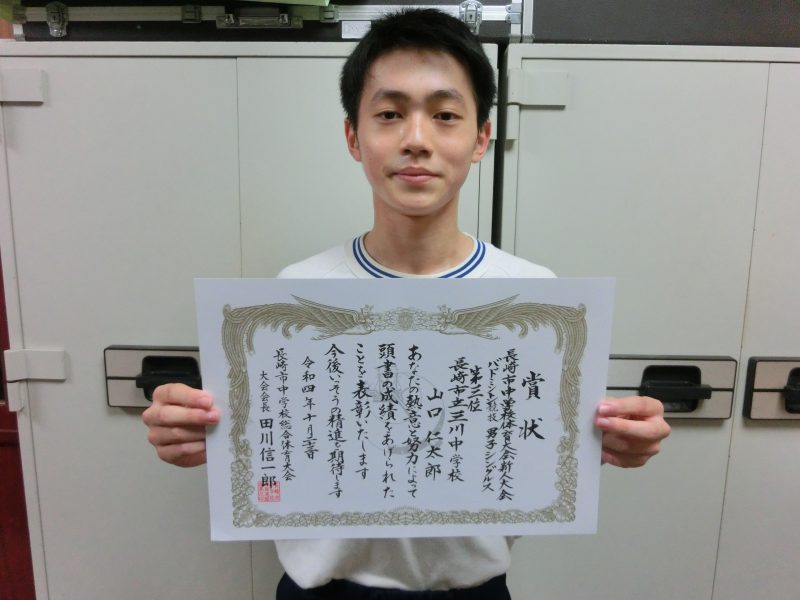 賞状
長崎市中学校総合体育大会新人大会
バドミントン競技 男子シングルス
第三位
長崎市立三川中学校
山口 仁太郎
あなたの熱意と努力によって
頭書の成績をあげられた
ことを表彰いたします
今後いっそうの精進を期待します
令和四年十月
長崎市中学校総合体育大会
大会会長 田川信一郎